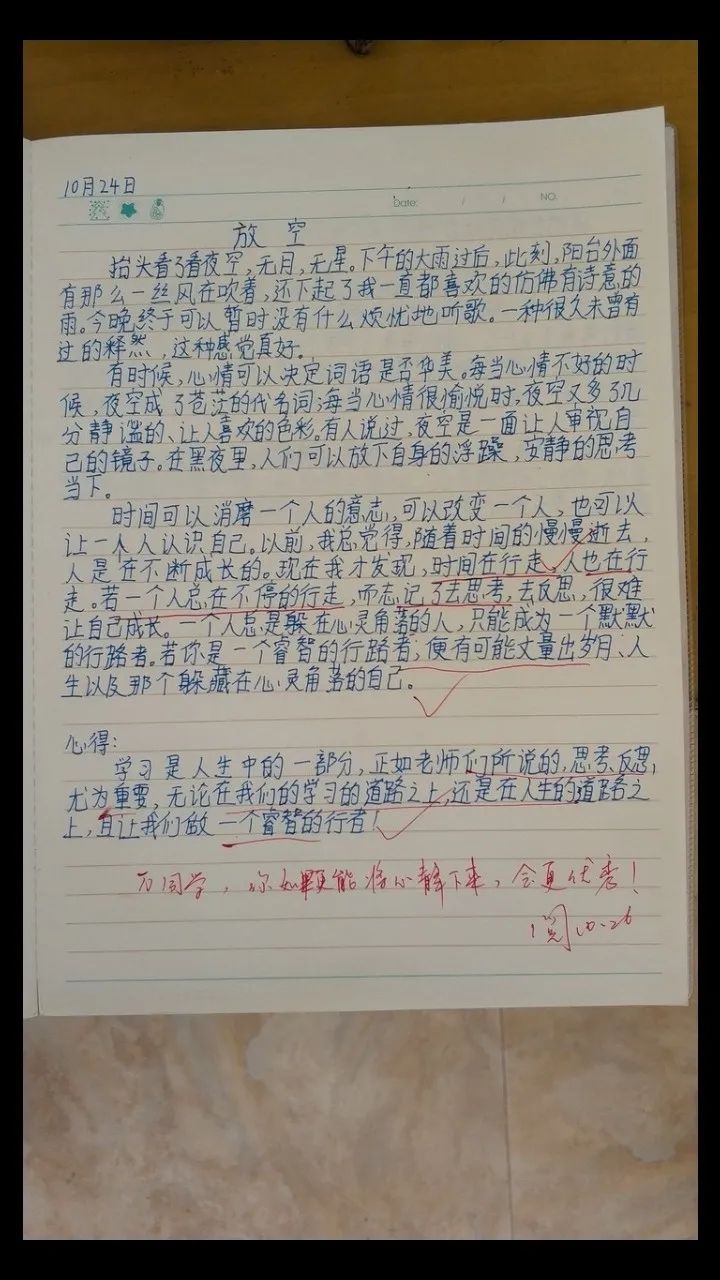 10月24日
Date: / / NO.
放空
抬头看了看夜空,无月,无星。下午的大雨过后,此刻,阳台外面
有那么一丝风在吹着,还下起了我一直都喜欢的仿佛有诗意的
雨。今晚终于可以暂时没有什么烦忧地听歌。一种很久未曾有
过的释然,这种感觉真好。
有时候,心情可以决定词语是否华美。每当心情不好的时
候,夜空成了苍茫的代名词;每当心情很愉悦时,夜空又多了几
分静谧的、让人喜欢的色彩。有人说过,夜空是一面让人审视自
己的镜子。在黑夜里,人们可以放下自身的浮躁,安静的思考
当下。
时间可以消磨一个人的意志,可以改变一个人,也可以
让一个人认识自己。以前,我总觉得,随着时间的慢慢逝去,
人是在不断成长的。现在我才发现,时间在行走,人也在行
走。若一个人总在不停的行走,而忘记了去思考,去反思,很难
让自己成长。一个人总是躲在心灵角落的人,只能成为一个默默
的行路者。若你是一个睿智的行路者;便有可能丈量出岁月、人
生以及那个躲藏在心灵角落的自己。
心得:
学习是人生中的一部分,正如老师们所说的,思考、反思,
尤为重要,无论在我们的学习的道路之上,还是在人生的道路之
上,且让我们做一个睿智的行者!
万同学,你如果能将心静下来,会更优秀!
阅10.26